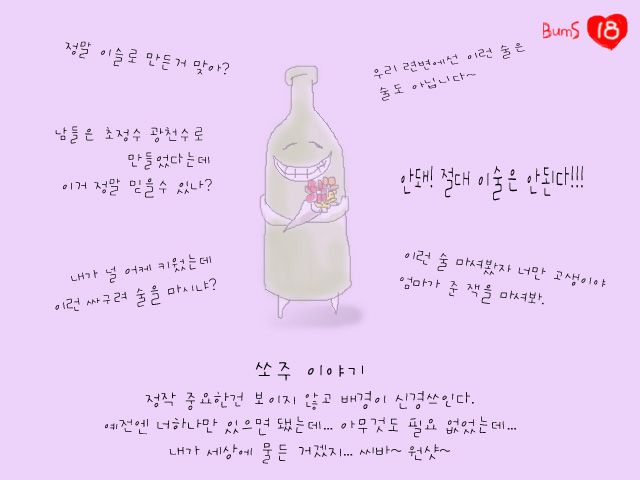 BumS 18
정말 이슬로 만든거 맞아?
우리 련변에선 이런 술은
술도 아닙니다~
남들은 초정수 광천수로
만들었다는데
이거 정말 믿을수 있나?
안돼! 절대 이술은 안된다!!!
내가 널 어케 키웠는데
이런 싸구려 술을 마시냐?
이런 술 마셔봤자 너만 고생이야
엄마가 준 잭을 마셔봐.
쏘주 이야기
정작 중요한건 보이지 않고 배경이 신경쓰인다.
예전엔 너하나만 있으면 됐는데... 아무것도 필요 없었는데...
내가 세상에 물든 거겠지... 씨바~ 원샷~